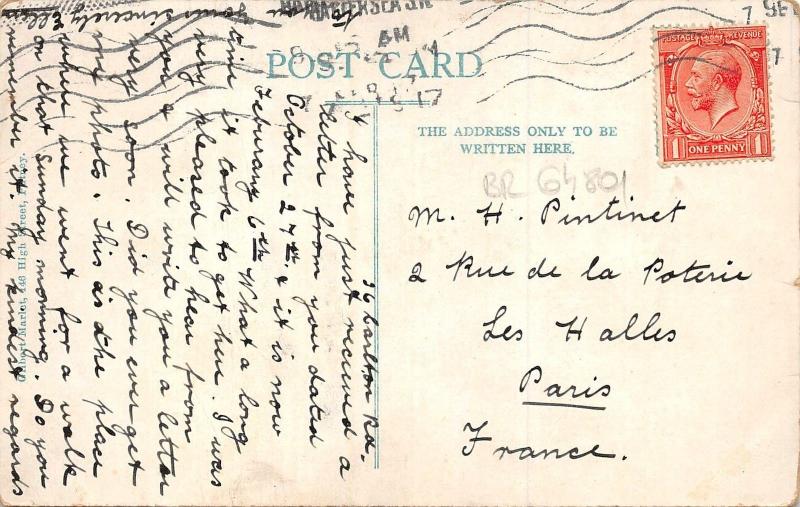 BATTERSEA S.W.
AM
17
POST CARD
POSTAGE REVENUE
1 ONE PENNY 1
THE ADDRESS ONLY TO BE
WRITTEN HERE.
BR 64801
M. H. Pintinet
2 Rue de la Poterie
Les Halles
Paris
France.
36 Carlton Rd.
I have just received a
letter from you dated
October 27th & it is now
Feburary 6th What a long
time it took to get here. I was
very pleased to hear from
you & will write you a letter
very soon. Did you ever get
my photo. This is the place
where we went for a walk
on that Sunday morning. Do you
remember it. My kindest regards
to
Yours sincerely
Nell
Gilbert Marlet, 146 High Street, Putney.